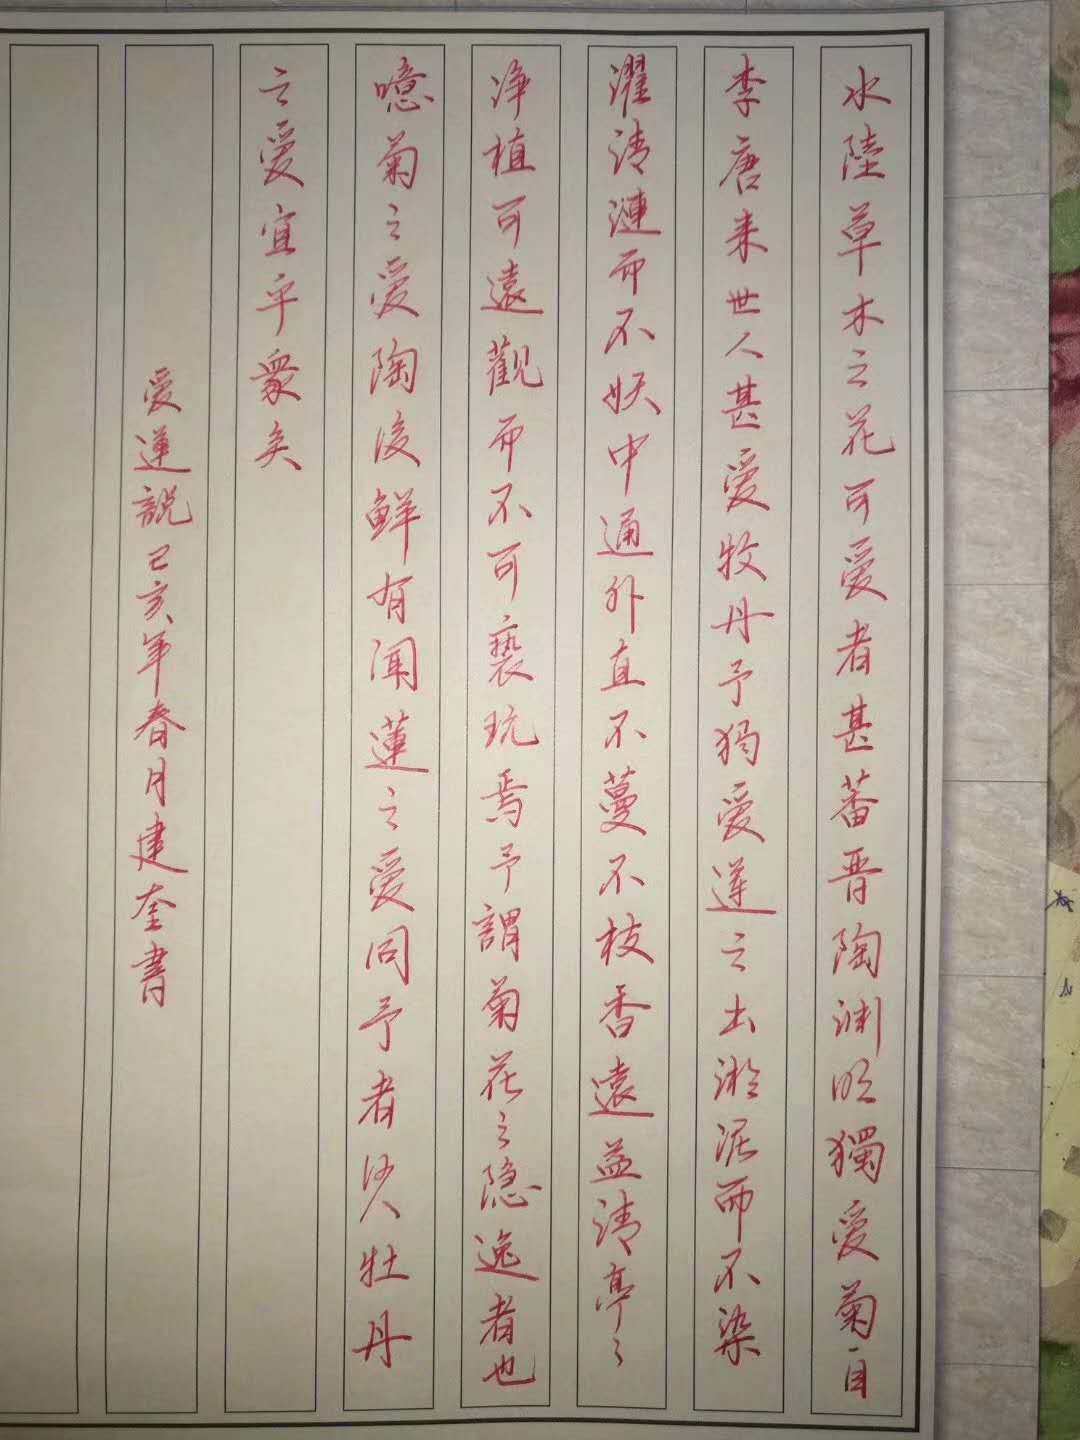 水陸草木之花可爱者甚蕃晋陶渊明獨爱菊自
李唐来世人甚爱牧丹予独爱蓮之出淤泥而不染
濯清漣而不妖中通外直不蔓不枝香遠益清亭々
净植可遠觀而不可褻玩焉予謂菊花之隐逸者也
噫菊之爱陶後鮮有闻蓮之爱同予者何人牡丹
之爱宜乎衆矣
爱蓮説己亥年春月建奎書